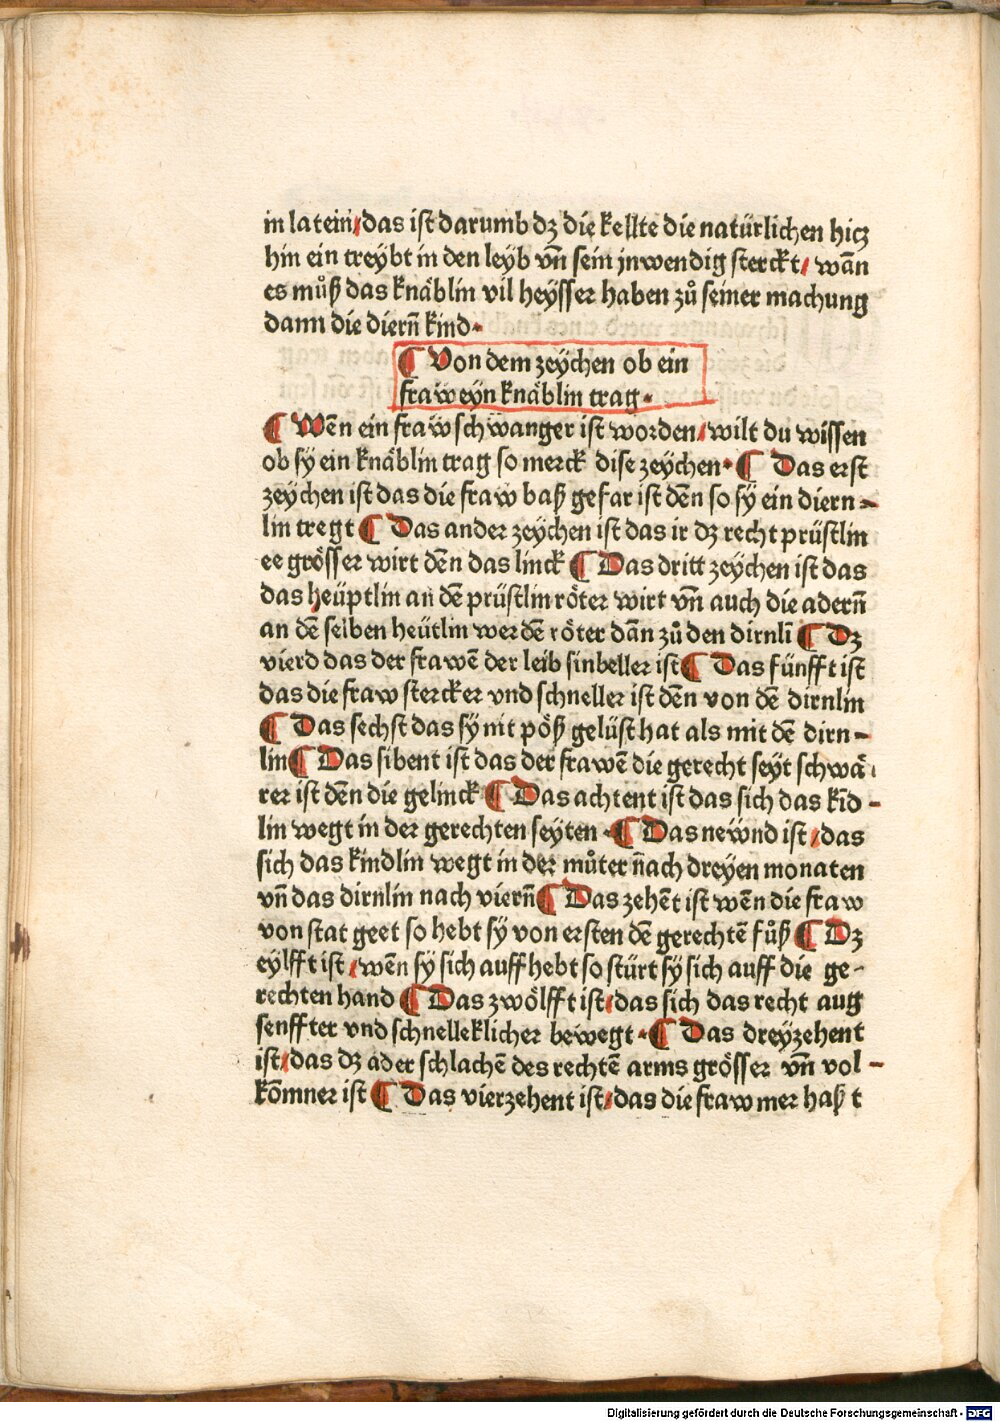 in latein/das ist darumb dʒ die kellte die natürlichen hicʒ
hin ein treybt in den leyb vn̄ sein jnwendig sterckt/ wān
es můß das knäblin vil heysser haben zů seiner machung
dann die diern̄ kind·
¶ Von dem zeychen ob ein
fraw eyn knäblin trag·
¶ Wēn ein fraw schwanger ist worden/wilt du wissen
ob sy ein knäblin trag so merck dise zeychen·¶ Das erst
zeychen ist das die fraw baß gefar ist dēn so sy ein diern-
lin tregt ¶ Das ander zeychen ist das ir dʒ recht prüstlin
ee grösser wirt dēn das linck ¶ Das dritt zeychen ist das
das heüptlin an dē prüstlin röter wirt vn̄ auch die adern̄
an dē selben heütlin werdē röter dān zů den dirnlī ¶ Dʒ
vierd das der frawē der leib sinbeller ist ¶ Das fünfft ist
das die fraw stercker vnd schneller ist dēn von dē dirnlin
¶ Das sechst das sy nit pöß gelüst hat als mit dē dirn-
lin ¶ Das sibent ist das der frawē die gerecht seyt schwä-
rer ist dēn die gelinck ¶ Das achtent ist das sich das kīd-
lin wegt in der gerechten seyten·¶ Das newnd ist/das
sich das kindlin wegt in der můter n̄ach dreyen monaten
vn̄ das dirnlin nach viern̄ ¶ Das zehēt ist wēn die fraw
von stat geet so hebt sy von ersten dē gerechtē fůß ¶ Dʒ
eylfft ist/wēn sy sich auff hebt so stürt sy sich auff die ge-
rechten hand ¶ Das zwölfft ist/das sich das recht aug
senffter vnd schnelleklicher bewegt·¶ Das dreyzehent
ist/das dʒ ader schlachē des rechtē arms grösser vn̄ vol-
kōmner ist ¶ Das vierzehent ist/das die fraw mer haßt
Digitalisierung gefördert durch die Deutsche Forschungsgemeinschaft - DFG